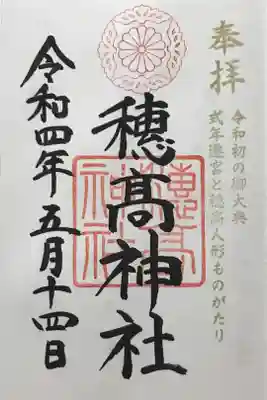 奉拝
令和初の御大典
式年遷宮と穂高人形ものがたり
穂髙神社
穂高神社
令和四年五月十四日